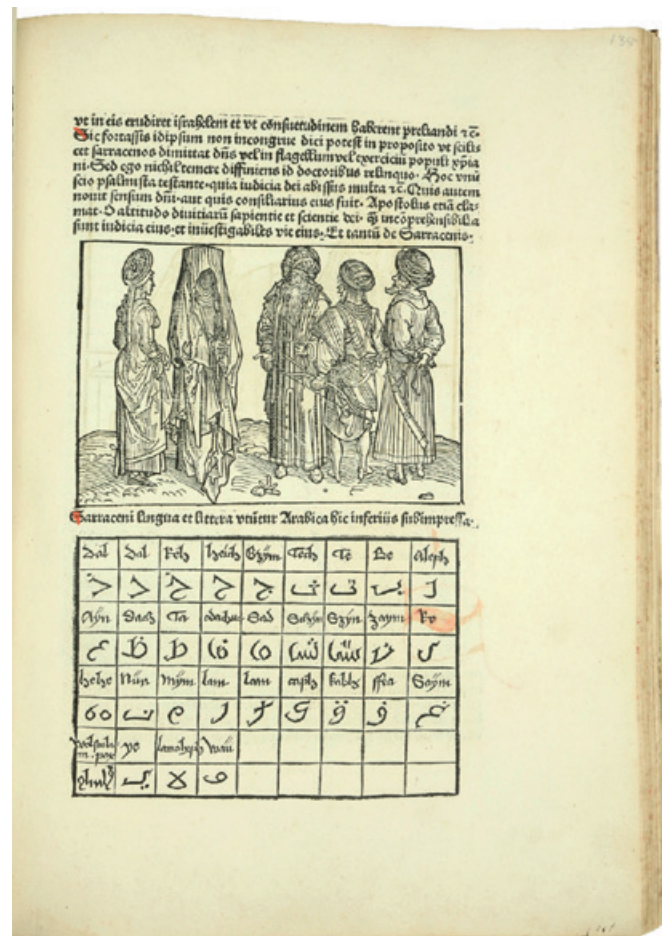 vt in eis erudiret israhelem et vt cõsuetudinem haberent preliandi ⁊c̃.
Sic fortassis idipsum non incongrue dici potest in proposito vt scili-
cet sarracenos dimittat dñs vel in flagellum vel exerciciũ populi xp̃ia
ni. Sed ego nichil temere diffiniens id doctoribus relinquo. Hoc vnũ
scio psalmista testante. quia iudicia dei abissus multa ⁊c̃. Quis autem
nouit sensum dñi. aut quis consiliarius eius fuit. Apostolus etiã cla-
mat. O altitudo diuitiarũ sapientie et scientie dei. q̃ incõprehensibilia
sunt iudicia eius. et inuestigabiles vie eius. Et tantũ de Sarracenis.
Sarraceni lingua et littera vtũtur Arabica hic inferius subimpressa.
Dal Dal Kch heich Gzym Tech Te Be Aleph
ذ د خ ح ج ث ت ب ا
Ayn Daaz Ta Sad Schyn Szyn zaym Ro
ع ظ ط ض ص ش س ز ر
hehe Nun Mym lam lam caph kabh ffea Gaym
ه ن م ل ك ق ف غ
yo lamoheph wau
ي لا و